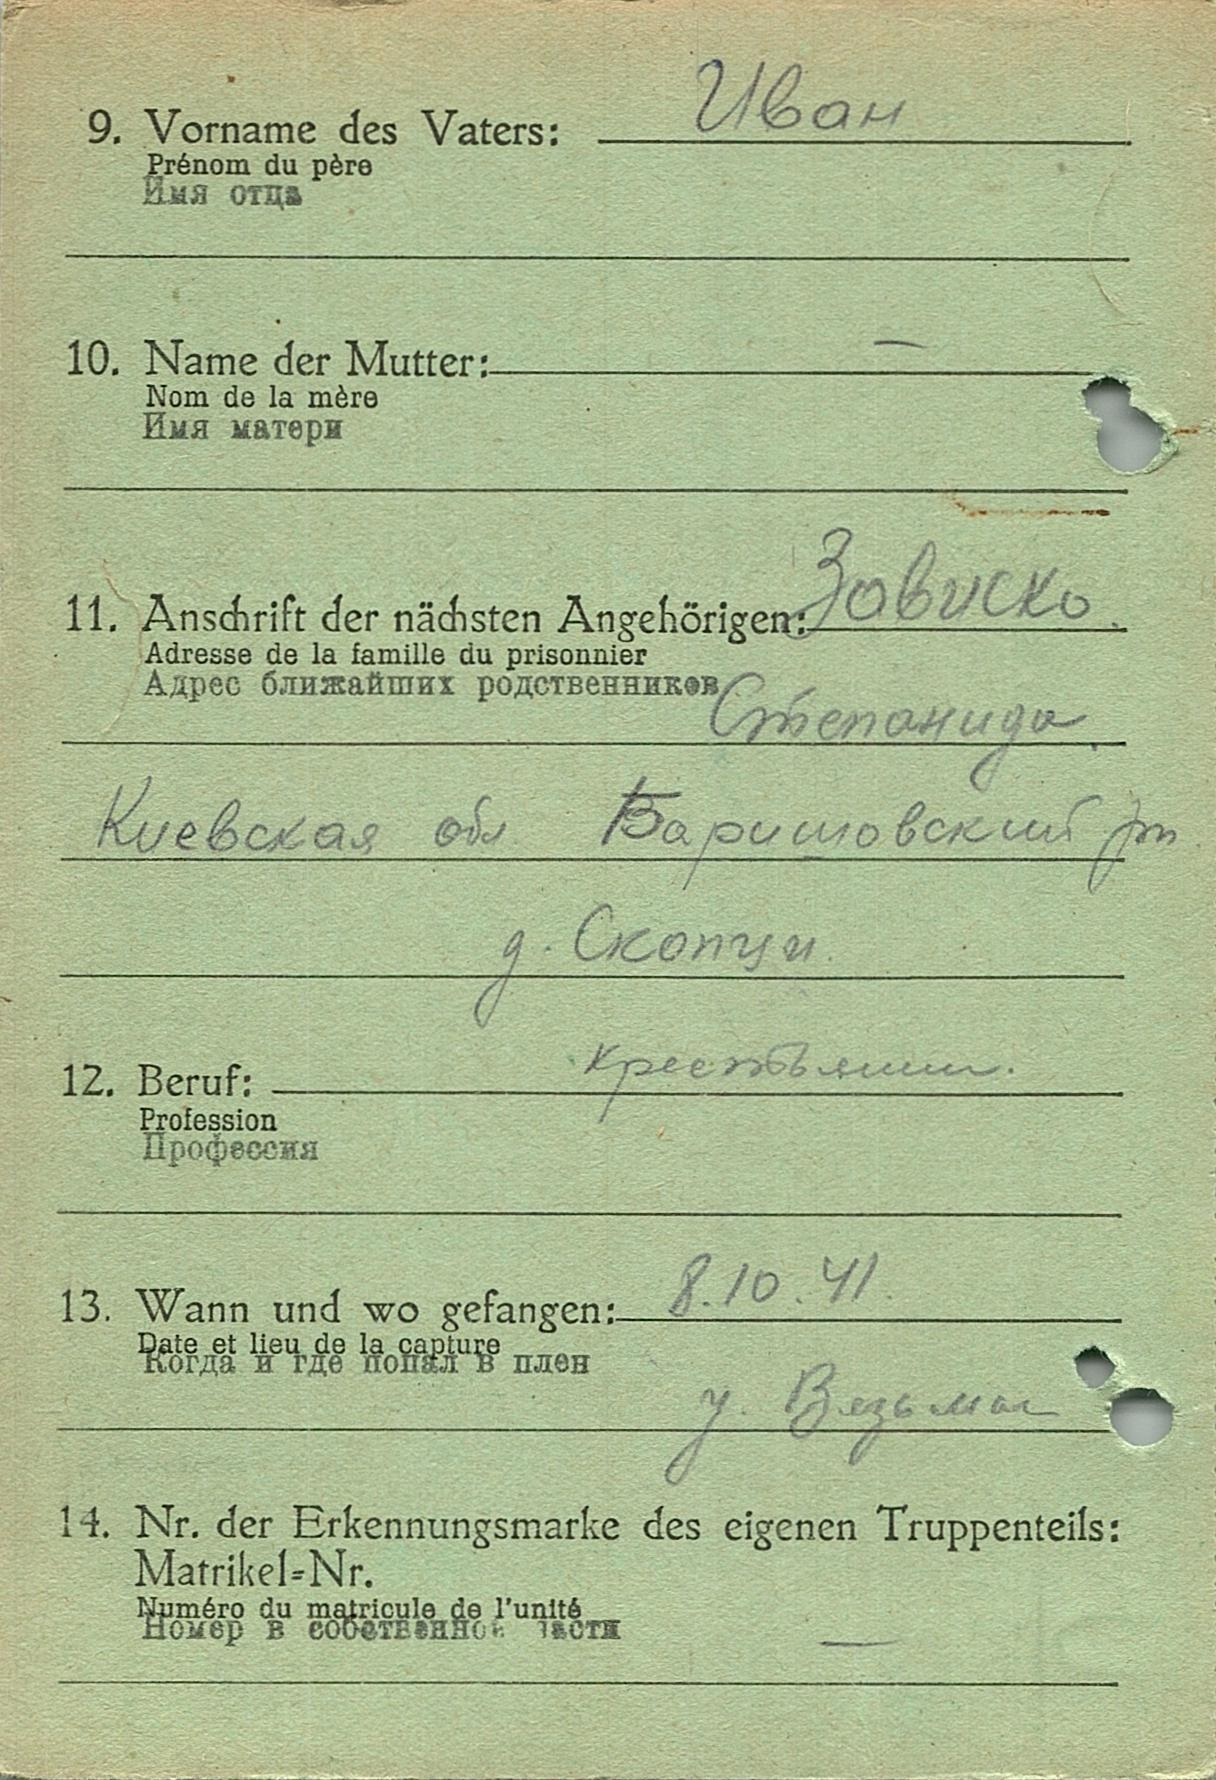 9. Vorname des Vaters: Иван
Prénom du père
Имя отца
10. Name der Mutter: —
Nom de la mère
Имя матери
11. Anschrift der nächsten Angehörigen: Зовиско.
Adresse de la famille du prisonnier
Адрес ближайших родственников
Степанида.
Киевская обл Баришовский рн
д. Скопци.
12. Beruf: крестьянин.
Profession
Профессия
13. Wann und wo gefangen: 8.10.41.
Date et lieu de la capture
Когда и где попал в плен
у. Вязьмы
14. Nr. der Erkennungsmarke des eigenen Truppenteils:
Matrikel=Nr.
Numéro du matricule de l'unité
Номер в собственной части
—